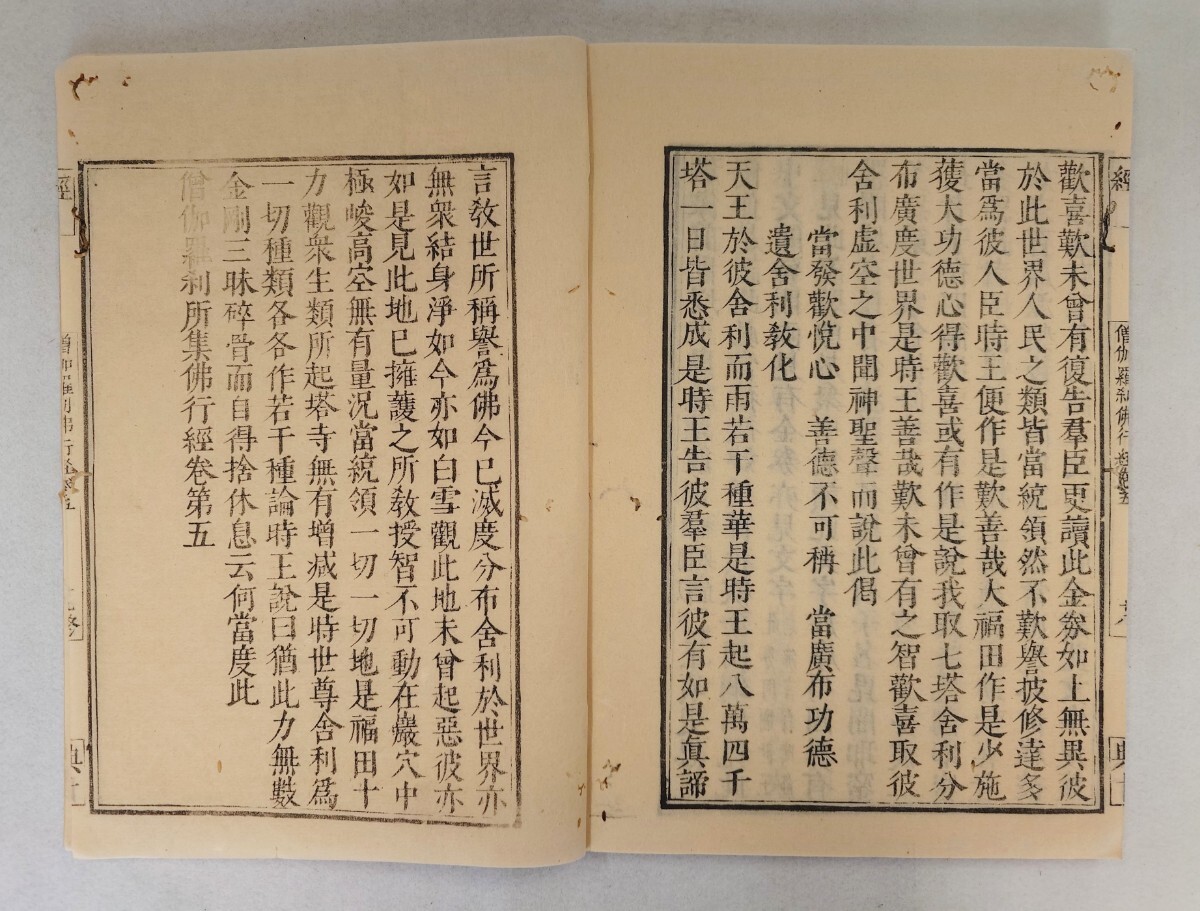 經
僧伽羅剎佛行經卷五
典十
歡喜歎未曾有復告羣臣更讀此金劵如上無異彼
於此世界人民之類皆當統領然不歎譽披修達多
當爲彼人臣時王便作是歎善哉大福田作是少施
獲大功德心得歡喜或有作是說我取七塔舍利分
布廣度世界是時王善哉歎未曾有之智歡喜取彼
舍利虛空之中聞神聖聲而說此偈
當發歡悅心 善德不可稱 當廣布功德
遺舍利敎化
天王於彼舍利而雨若干種華是時王起八萬四千
塔一日皆悉成是時王告彼羣臣言彼有如是眞諦
言敎世所稱譽爲佛今已滅度分布舍利於世界亦
無衆結身淨如今亦如白雪觀此地未曾起惡彼亦
如是見此地已擁護之所敎授智不可動在巖穴中
極峻高空無有量況當統領一切一切地是福田十
力觀衆生類所起塔寺無有增減是時世尊舍利爲
一切種類各各作若干種論時王說曰猶此力無數
金剛三昧碎骨而自得捨休息云何當度此
僧伽羅剎所集佛行經卷第五
經
典十